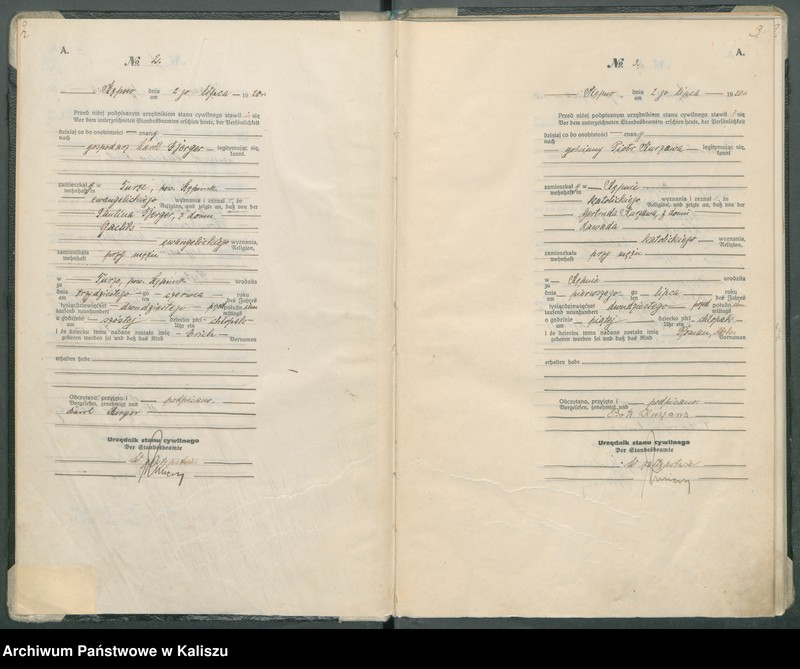 2
A.
№ 2.
Kępno dnia 2 go lipca 1920
am
Przed niżej podpisanym urzędnikiem stanu cywilnego stawił się
Vor dem unterzeichneten Standesbeamten erschien heute, der Persönlichkeit
dzisiaj co do osobistości — znany
nach
gospodarz Karol legitymując się,
kannt,
zamieszkały w Turze, pow. Kępiński
wohnhaft in
ewangelickiego wyznania i zeznał, że
Religion, und zeigte an, daß von der
Paulina z domu
ewangelickiego wyznania,
Religion,
zamieszkała przy mężu
wohnhaft
w Turze, pow. Kępiński urodziła
zu
dnia trzydziestego go czerwca roku
am ten des Jahres
tysiącdziewięćset dwudziestego przed południem
tausend neunhundert mittags
o godzinie szóstej dziecko płci chłopak
um Uhr ein
i że dziecku temu nadane zostało imię Erich
geboren worden sei und daß das Kind Vornamen
erhalten habe
Odczytano, przyjęto i podpisano.
Vorgelesen, genehmigt und
Karol
Urzędnik stanu cywilnego
Der Standesbeamte
W zastępstwie
3
A.
№ 3.
Kępno dnia 2 go lipca 1920
am
Przed niżej podpisanym urzędnikiem stanu cywilnego stawił się
Vor dem unterzeichneten Standesbeamten erschien heute, der Persönlichkeit
dzisiaj co do osobistości — znany
nach
gościnny Piotr Kurzawa legitymując się,
kannt,
zamieszkały w Kępnie
wohnhaft in
katolickiego wyznania i zeznał, że
Religion, und zeigte an, daß von der
Gertruda Kurzawa, z domu
Kawada
katolickiego wyznania,
Religion,
zamieszkała przy mężu
wohnhaft
w Kępnie urodziła
zu
dnia pierwszego go lipca roku
am ten des Jahres
tysiącdziewięćset dwudziestego przed południem
tausend neunhundert mittags
o godzinie piątej dziecko płci chłopak
um Uhr ein
i że dziecku temu nadane zostało imię Roman,
geboren worden sei und daß das Kind Vornamen
erhalten habe
Odczytano, przyjęto i podpisano
Vorgelesen, genehmigt und
Piotr Kurzawa
Urzędnik stanu cywilnego
Der Standesbeamte
W zastępstwie
Archiwum Państwowe w Kaliszu